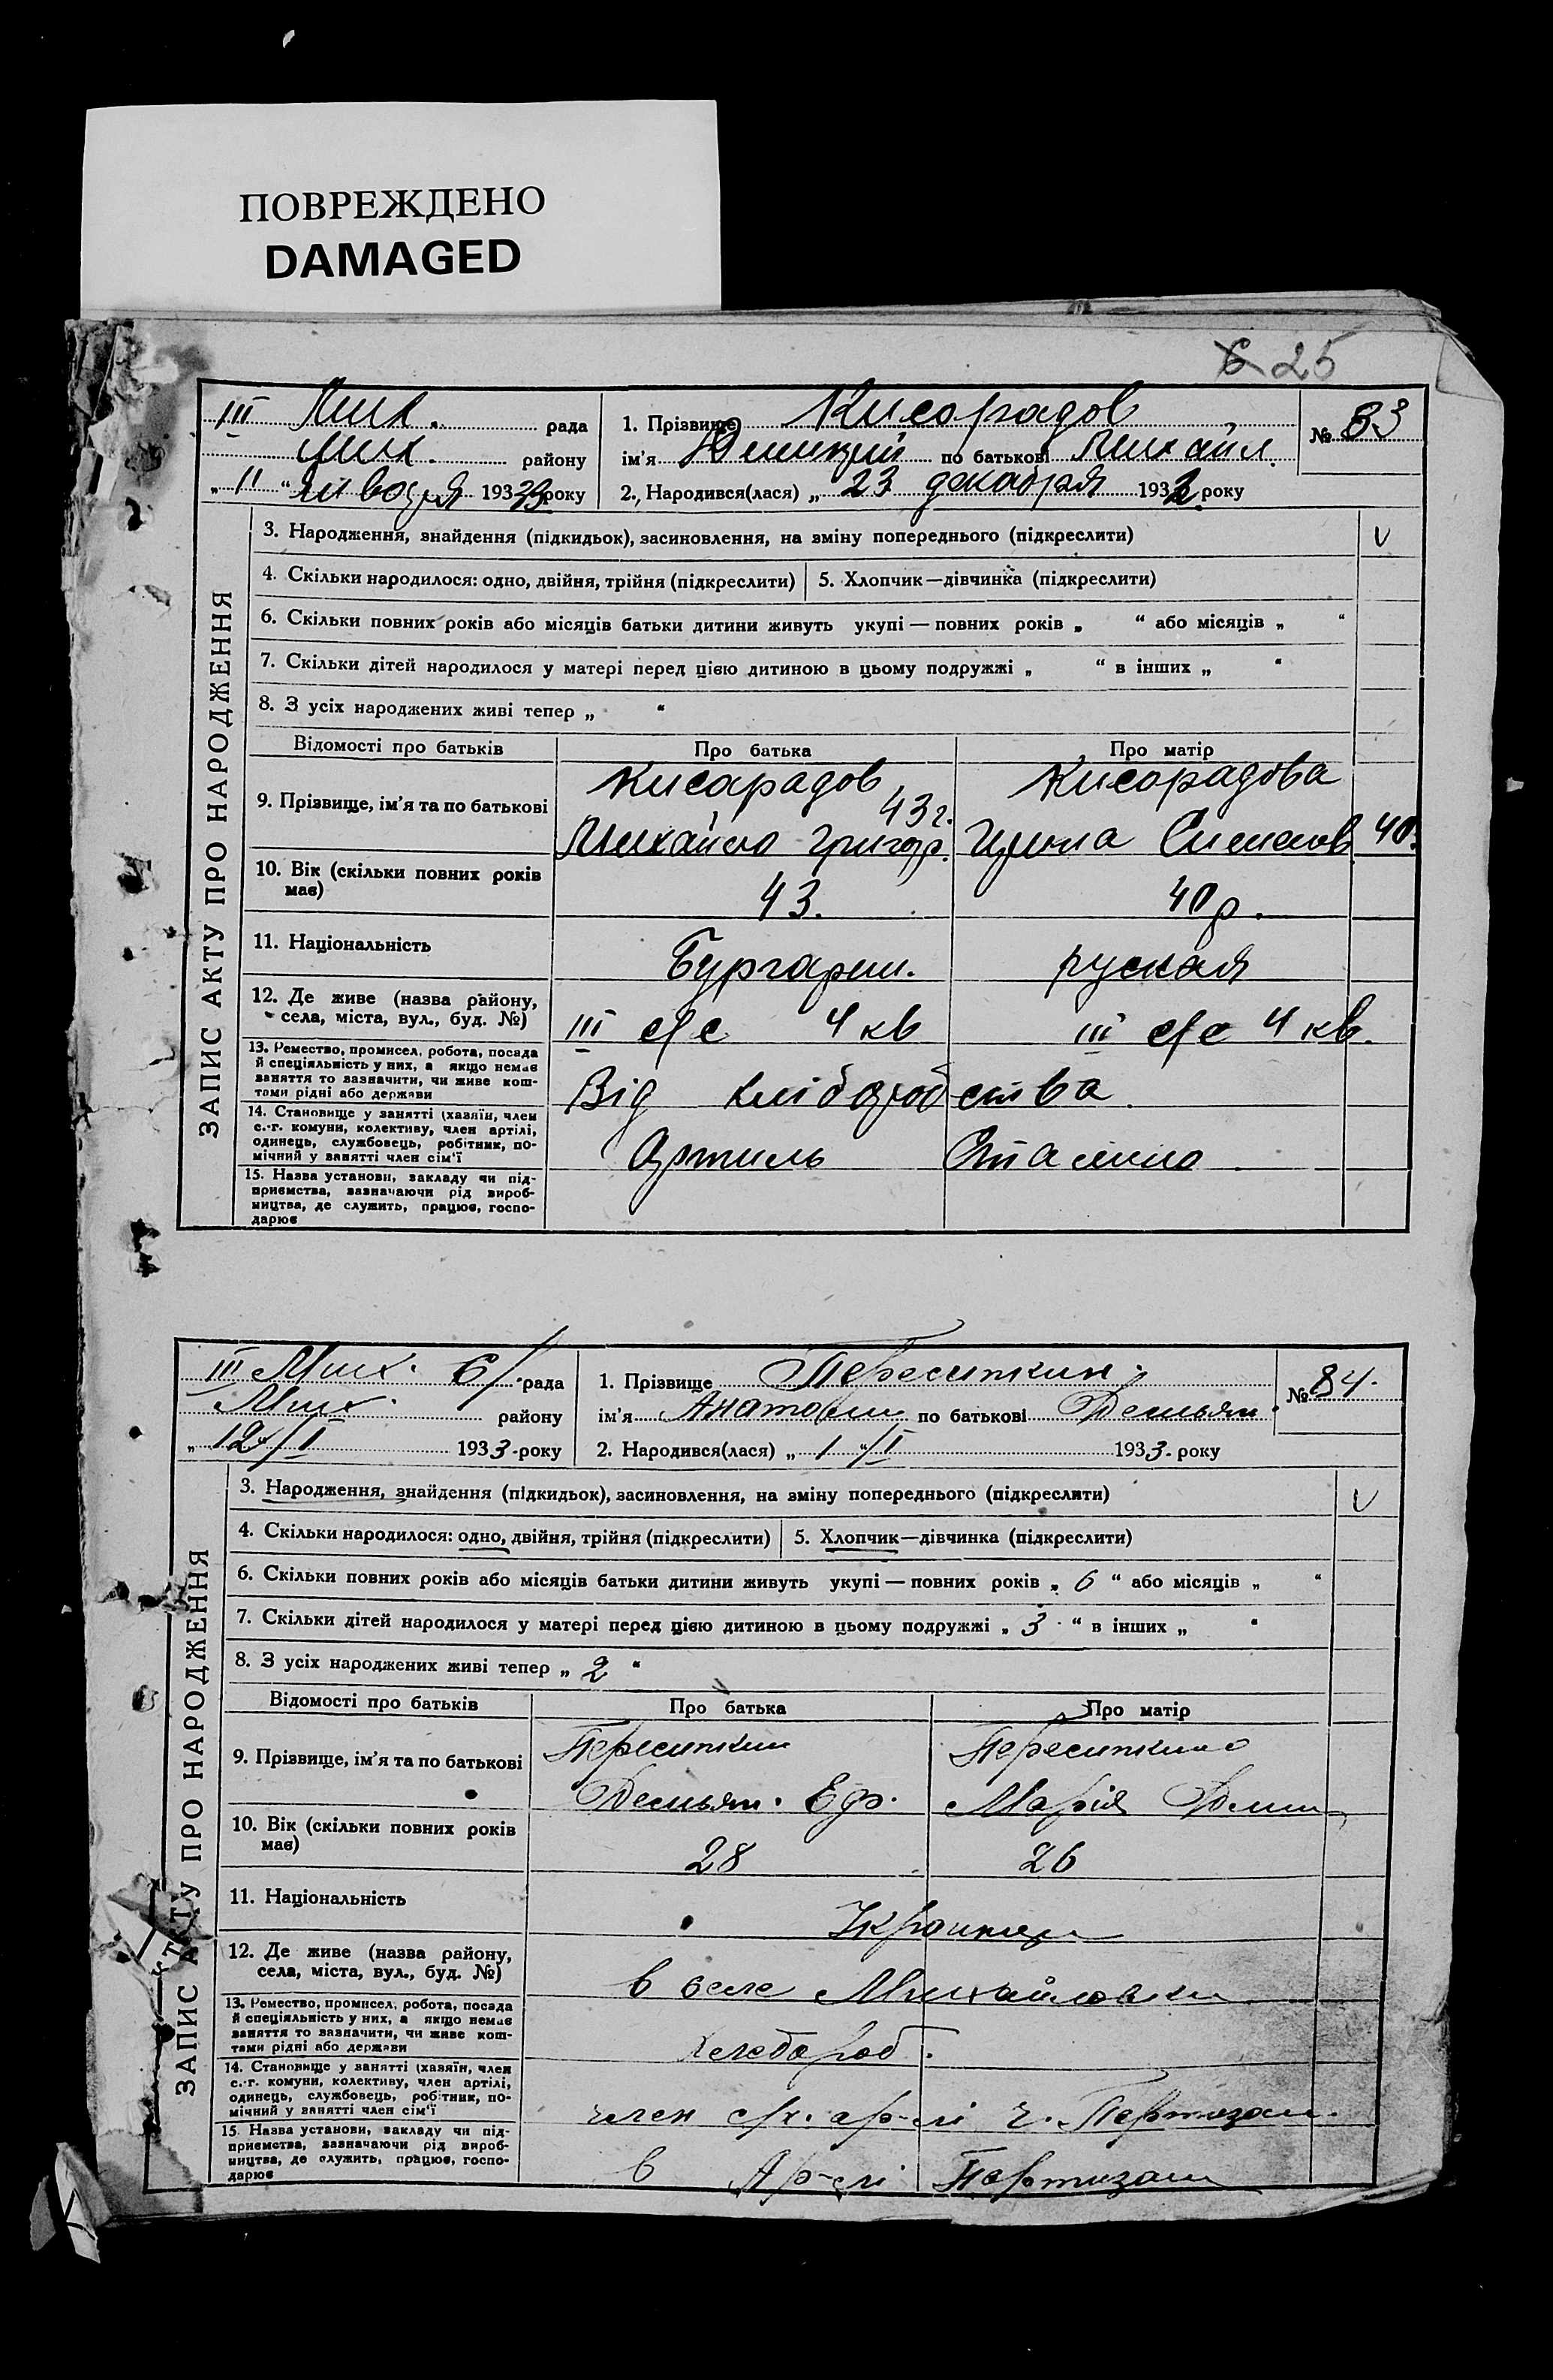 ПОВРЕЖДЕНО
DAMAGED
6 25
III Мих. рада
Мих. району
„ 11 “ января 1933 року
1. Прізвище Кисорадов
ім'я Дмитрий по батькові Михайл.
2. Народився(лася) „ 23 декабря 1932 року
№ 83
ЗАПИС АКТУ ПРО НАРОДЖЕННЯ
3. Народження, знайдення (підкидьок), засиновлення, на зміну попереднього (підкреслити) V
4. Скільки народилося: одно, двійня, трійня (підкреслити) 5. Хлопчик—дівчинка (підкреслити)
6. Скільки повних років або місяців батьки дитини живуть укупі — повних років „ “ або місяців „ “
7. Скільки дітей народилося у матері перед цією дитиною в цьому подружжі „ “ в інших „ “
8. З усіх народжених живі тепер „ “
Відомості про батьків Про батька Про матір
9. Прізвище, ім'я та по батькові
Кисарадов 43 г.
Михайло Григор.
Кисорадова
Ирина Сименов. 40.
10. Вік (скільки повних років
має)
43. 40 р.
11. Національність
Бургарин. руская
12. Де живе (назва району,
села, міста, вул., буд. №)
III с/с 4 кв III с/с 4 кв.
13. Ремество, промисел, робота, посада
й спеціяльність у них, а якщо немає
заняття то зазначити, чи живе кош-
тами рідні або держави
Від хліборобства
14. Становище у занятті (хазяїн, член
с.-г. комуни, колективу, член артілі,
одинець, службовець, робітник, по-
мічний у занятті член сім'ї
Артиль Сталино
15. Назва установи, закладу чи під-
приємства, зазначаючи рід вироб-
ництва, де служить, працює, госпо-
дарює
III Мих. с/рада
Мих. району
„ 12 “/I 1933 року
1. Прізвище Переситкин
ім'я Анатолий по батькові Демьян.
2. Народився(лася) „ 1 “/I 1933. року
№ 84.
ЗАПИС АКТУ ПРО НАРОДЖЕННЯ
3. Народження, знайдення (підкидьок), засиновлення, на зміну попереднього (підкреслити) V
4. Скільки народилося: одно, двійня, трійня (підкреслити) 5. Хлопчик—дівчинка (підкреслити)
6. Скільки повних років або місяців батьки дитини живуть укупі — повних років „ 6 “ або місяців „ “
7. Скільки дітей народилося у матері перед цією дитиною в цьому подружжі „ 3 “ в інших „ “
8. З усіх народжених живі тепер „ 2 “
Відомості про батьків Про батька Про матір
9. Прізвище, ім'я та по батькові
Переситкин
Демьян.
Переситкина
Марія
10. Вік (скільки повних років
має)
28 26
11. Національність
12. Де живе (назва району,
села, міста, вул., буд. №)
в селе Михайловки
13. Ремество, промисел, робота, посада
й спеціяльність у них, а якщо немає
заняття то зазначити, чи живе кош-
тами рідні або держави
хлебороб.
14. Становище у занятті (хазяїн, член
с.-г. комуни, колективу, член артілі,
одинець, службовець, робітник, по-
мічний у занятті член сім'ї
член с/х. ар-лі ч. Партизан.
15. Назва установи, закладу чи під-
приємства, зазначаючи рід вироб-
ництва, де служить, працює, госпо-
дарює
в Ар-лі Партизан